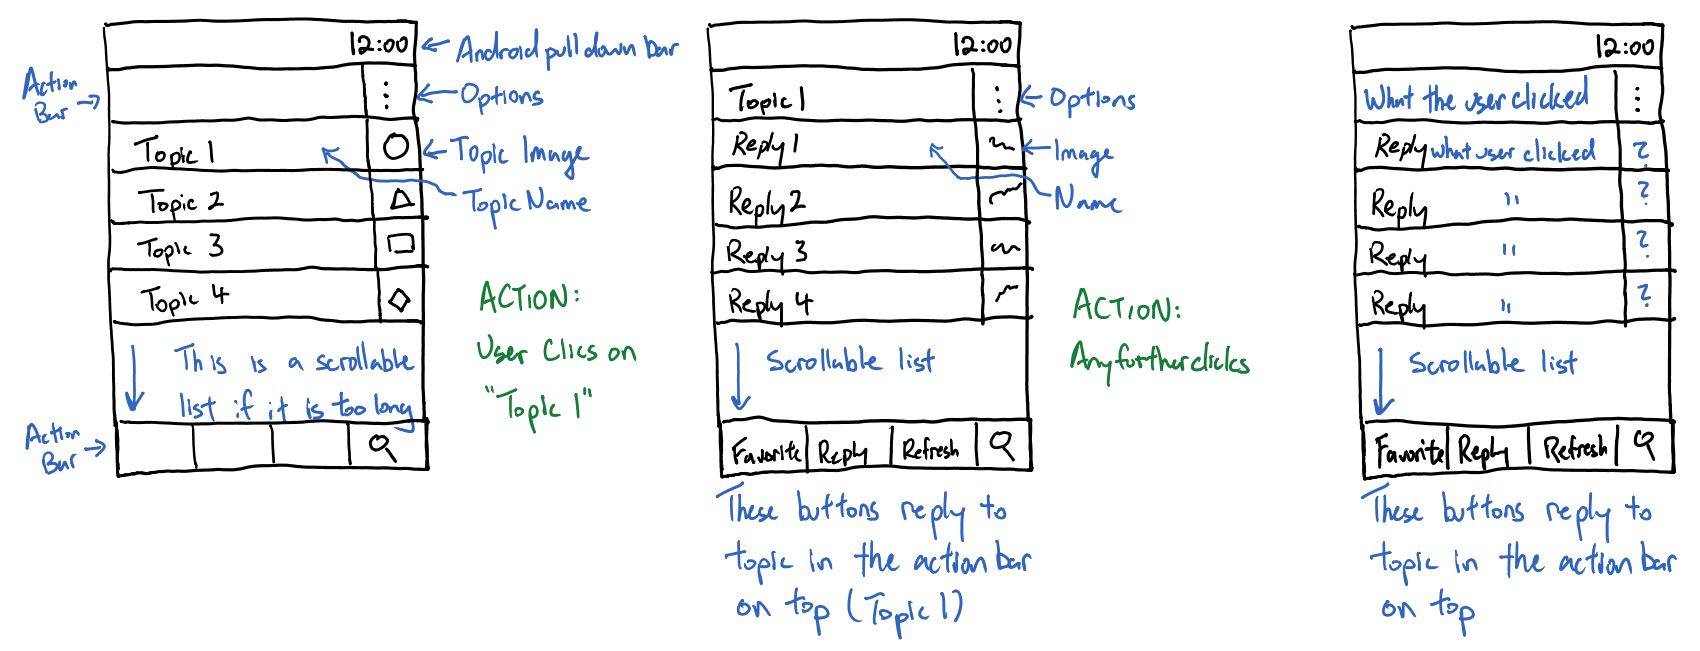 12:00
Android pull down bar
Action
Bar
⋮
Options
Topic 1
Topic Image
Topic 2
Topic Name
Topic 3
Topic 4
This is a scrollable
list if it is too long
Action
Bar
ACTION:
User Clics on
"Topic 1"
12:00
Topic 1
⋮
Options
Reply 1
Image
Reply 2
Name
Reply 3
Reply 4
Scrollable list
Favorite Reply Refresh
These buttons reply to
topic in the action bar
on top (Topic 1)
ACTION:
Any further clicks
12:00
What the user clicked
⋮
Reply what user clicked ?
Reply " ?
Reply " ?
Reply " ?
Scrollable list
Favorite Reply Refresh
These buttons reply to
topic in the action bar
on top